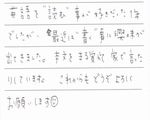 英語を「読む」事が好きだった僕
でしたが、最近は"書く"事に興味が
出てきました。英文をまる覚え、家で言った
りしています。これからもどうぞよろしく
お願いします☺